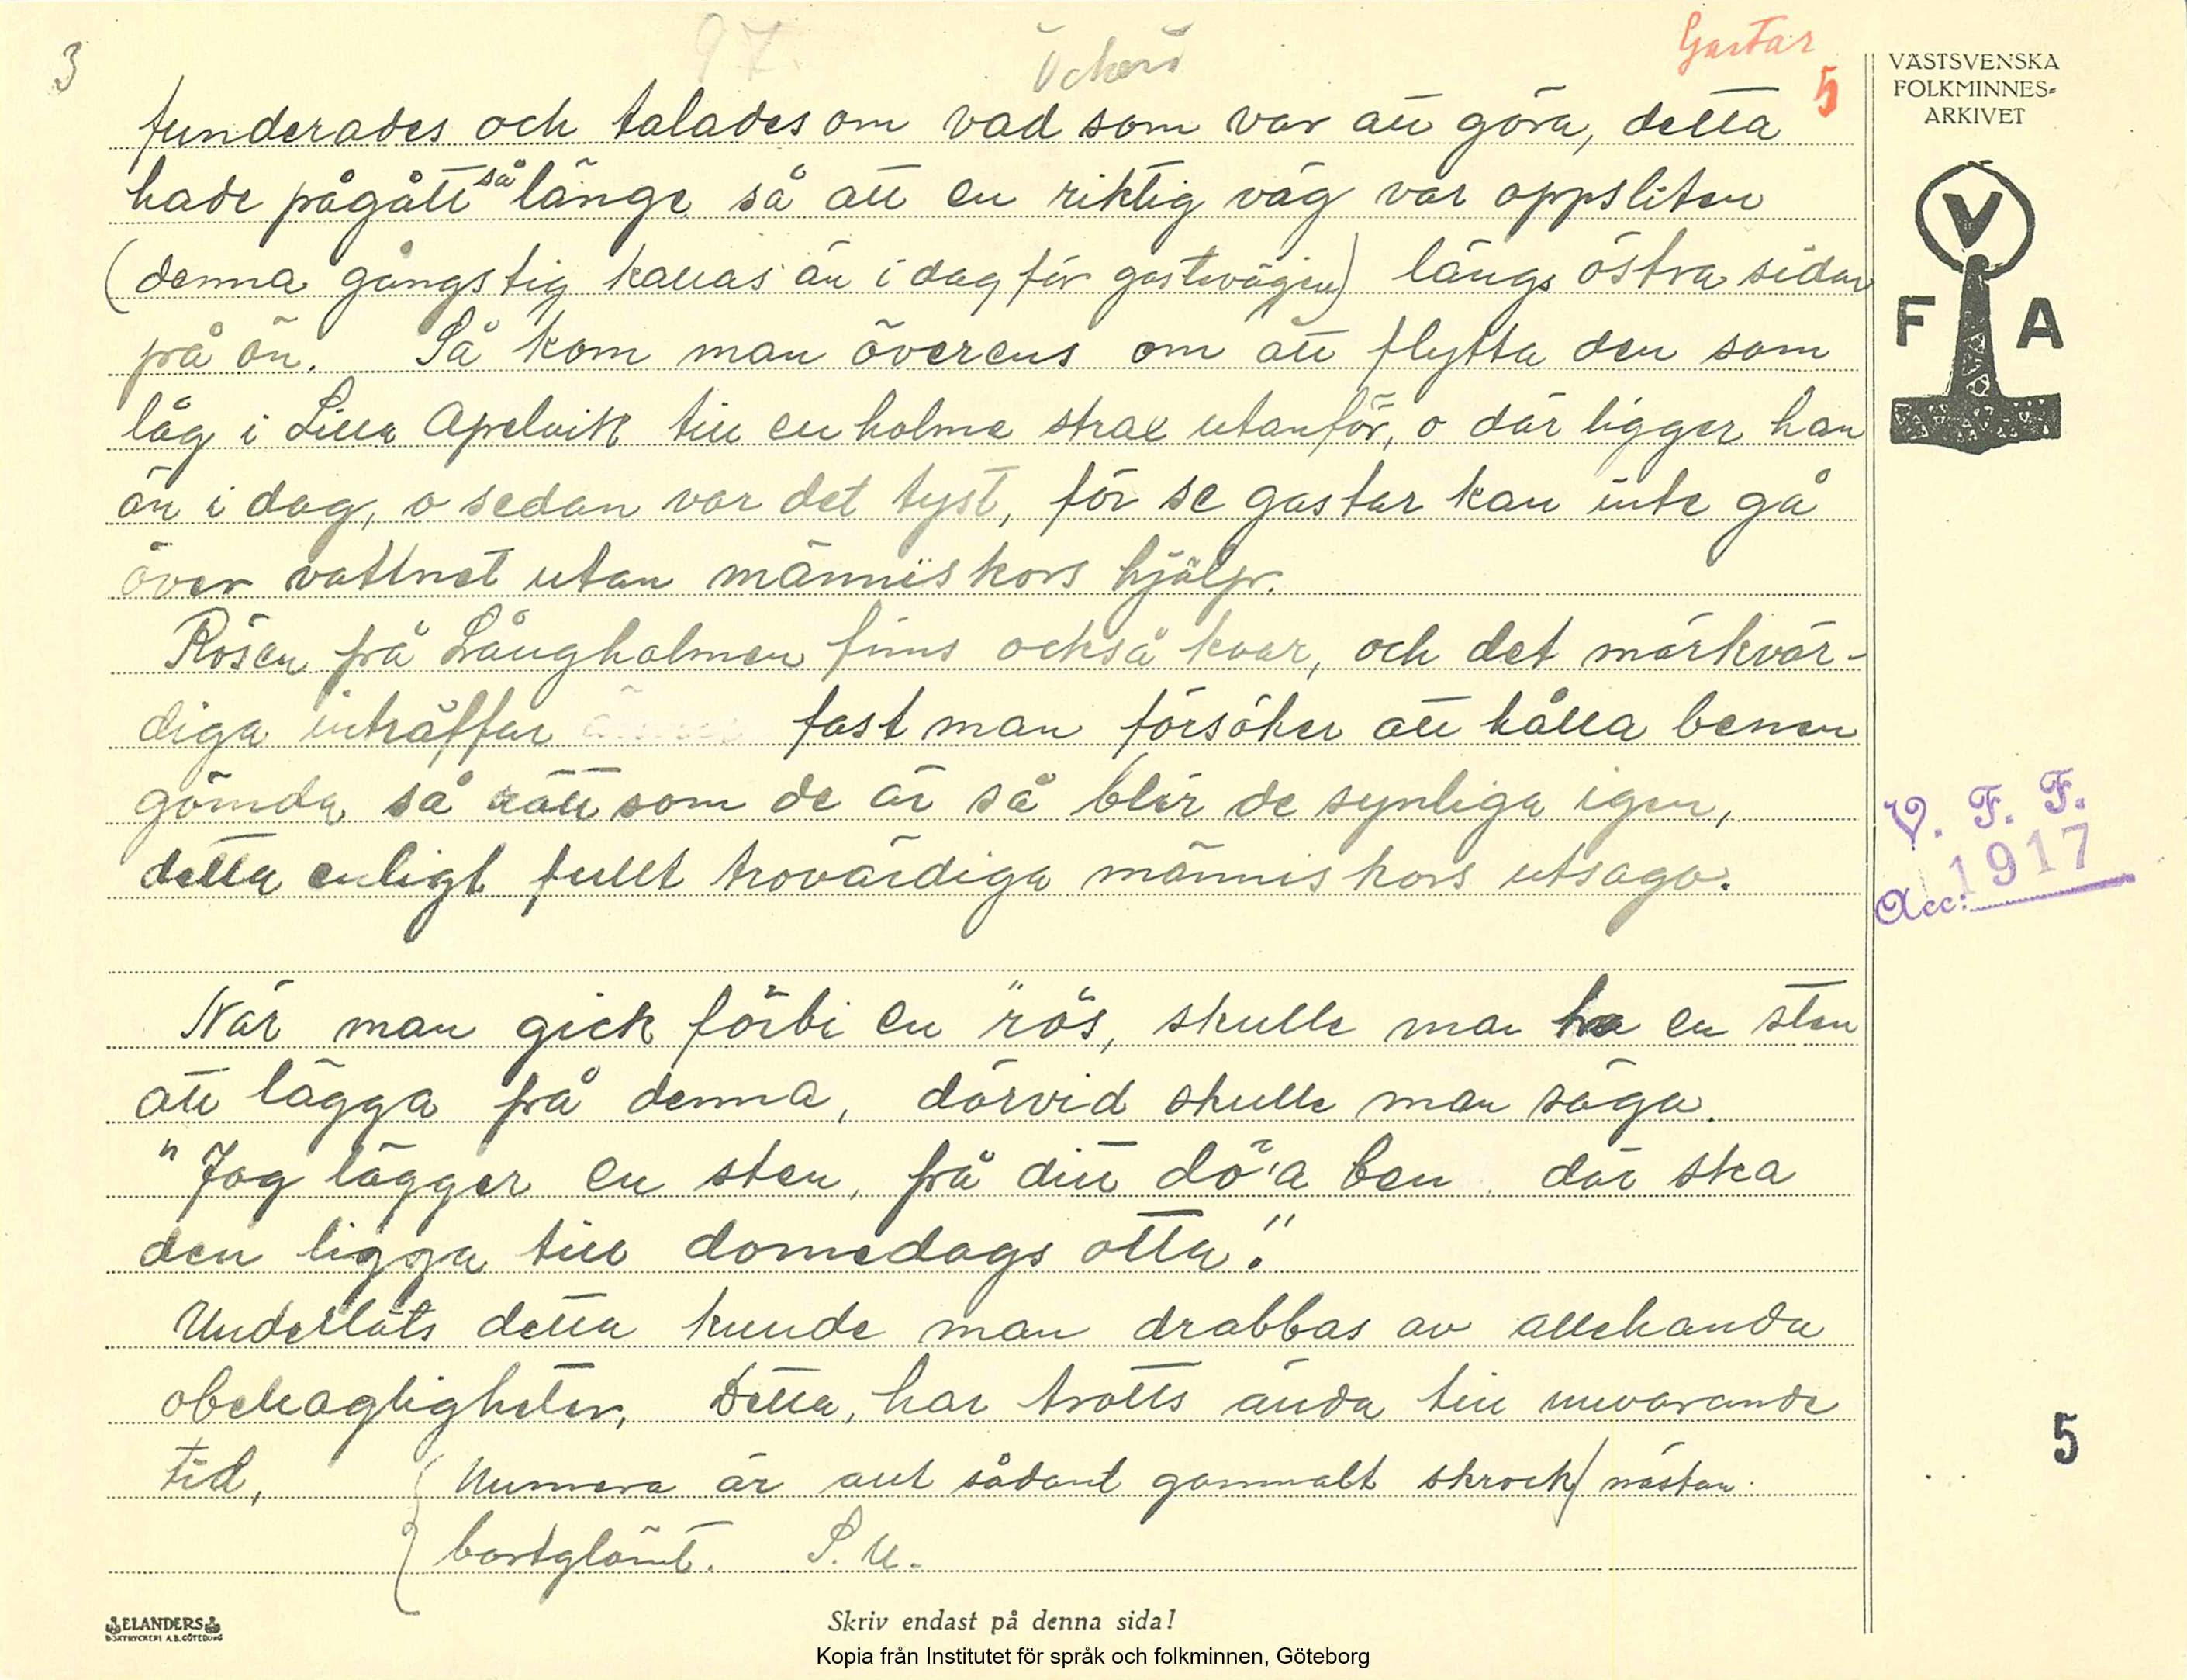 3
97.
Öckerö
Gastar
5
VÄSTSVENSKA
FOLKMINNES-
ARKIVET
V
F A
funderades och talades om vad som var att göra, detta
hade pågått så länge så att en riktig väg var oppsliten
(denna gångstig kallas än i dag för gastevägen) längs östra sidan
på ön. Så kom man överens om att flytta den som
låg i Lilla Apelvik till en holme strax utanför, o där ligger han
än i dag, o sedan var det tyst, för se gastar kan inte gå
över vattnet utan människors hjälp.
Rösen på Långholmen finns också kvar, och det märkvär-
diga inträffar fast man försöker att hålla benen
gömda så rätt som de är så blir de synliga igen,
detta enligt fullt trovärdiga människors utsago.
V. F. F.
Acc: 1917
När man gick förbi en "rös, skulle man ha en sten
att lägga på denna, därvid skulle man säga.
"Jag lägger en sten, på ditt dö'a ben där ska
den ligga till domedags otta."
Underläts detta kunde man drabbas av allehanda
obehagligheter, Detta, har trotts ända till nuvarande
tid, (Numera är allt sådant gammalt skrock/ nästan
bortglömt. S. U.
5
ELANDERS
BOKTRYCKERI A.B. GÖTEBORG
Skriv endast på denna sida!
Kopia från Institutet för språk och folkminnen, Göteborg